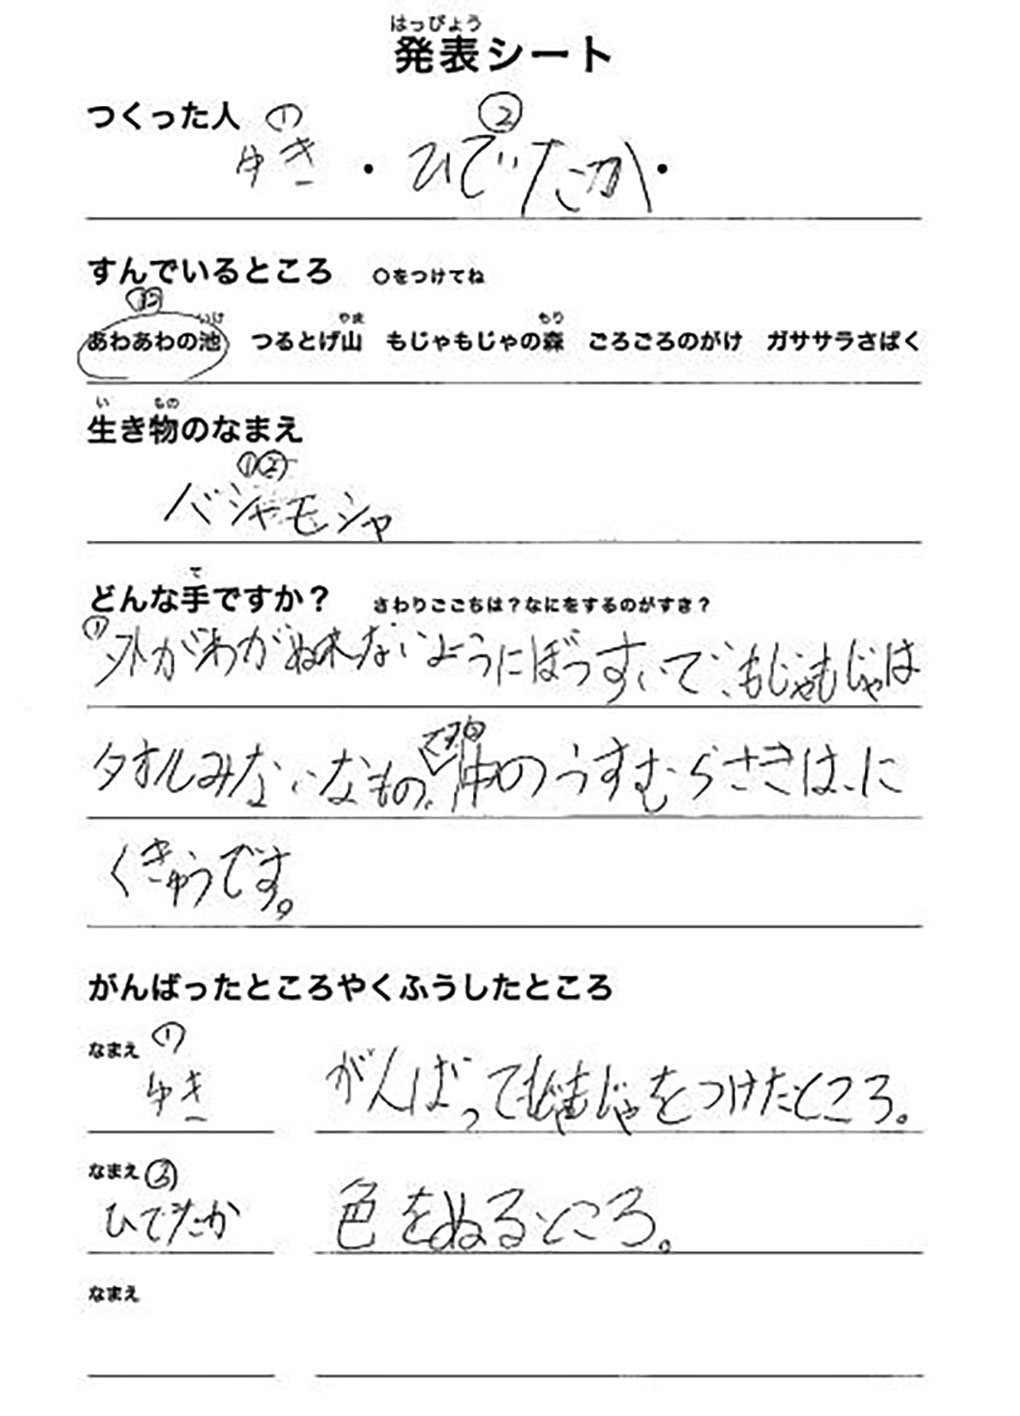 はっぴょう
発表シート
つくった人 ①
②
ゆき ・ ひでたか ・
すんでいるところ ○をつけてね
いけ やま もり
あわあわの池 つるとげ山 もじゃもじゃの森 ごろごろのがけ ガササラさばく
い もの
生き物のなまえ
①②
バシャモシャ
て
どんな手ですか? さわりごこちは?なにをするのがすき?
①外がわがぬれないようにぼうすいで、もじゃもじゃは
タオルみないなもの、中のうすむらさきは、に
くきゅうです。
がんばったところやくふうしたところ
なまえ ①
ゆき がんばってもじゃもじゃをつけたところ。
なまえ ②
ひでたか 色をぬるところ。
なまえ